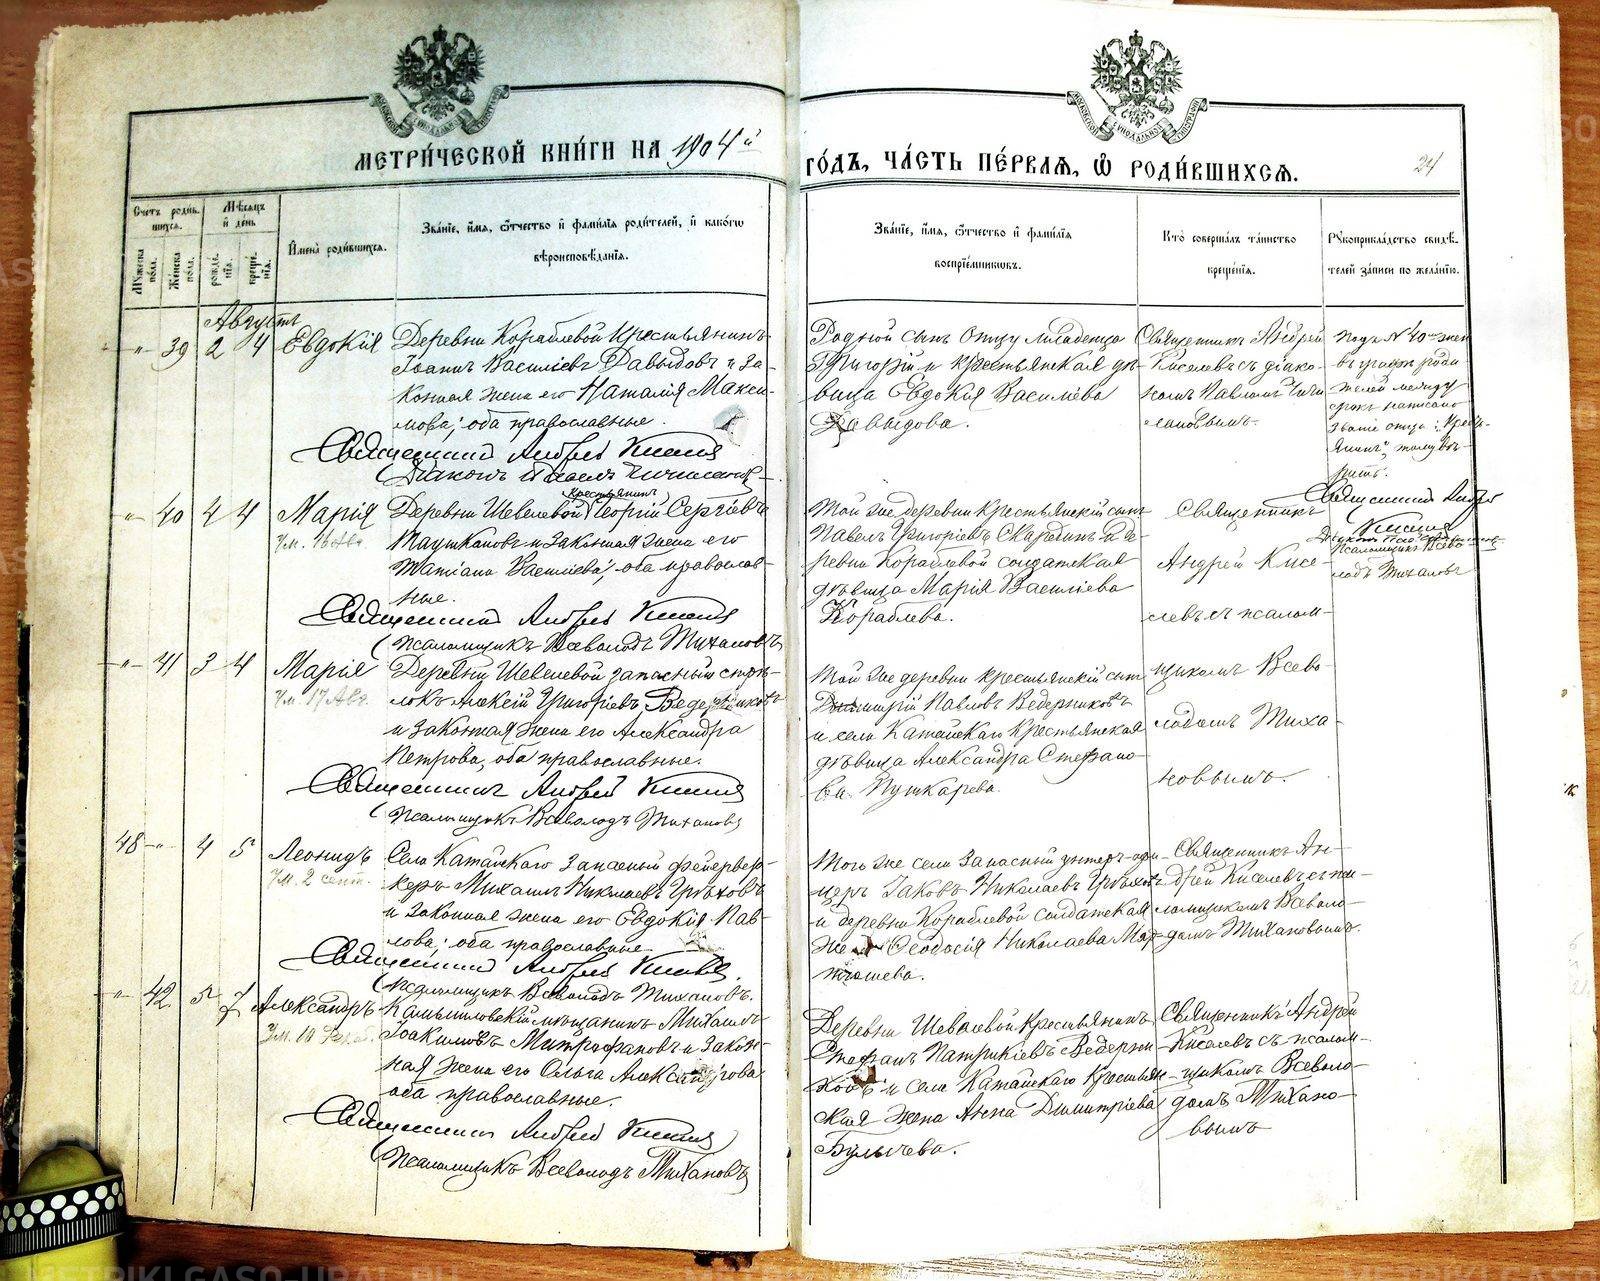 МЕТРИ́ЧЕСКОЙ КНИ́ГИ НА 1904й
ГО́ДЪ, ЧА́СТЬ ПЕ́РВАѦ, Ѡ҃ РОДИ́ВШИХСѦ.
24
Счетъ роди́вшихсѧ.
Мꙋжеска по́ла.
Же́нска по́ла.
Мѣ́сѧцъ и день
рожде́нїѧ.
креще́нїѧ.
Имена̀ роди́вшихсѧ.
Зва́нїе, и́мѧ, ѻ҆́тчество и фами́лїѧ роди́телей, и како́гѡ
вѣроисповѣ́данїѧ.
Зва́нїе, и́мѧ, ѻ҆́тчество и фами́лїѧ
воспрїе́мникѡвъ.
Кто̀ соверша́лъ та́инство
креще́нїѧ.
Рꙋкоприкла́дство свидѣ́-
телей за́писи по жела́нїю.
Августъ
-"- 39 2 4 Евдокія
Деревни Кораблевой Крестьянинъ
Іоаннъ Васильевъ Давыдовъ и за-
конная жена его Наталія Макси-
мова; оба православные.
Священникъ Андрей Киселевъ
Діаконъ Павелъ
Родной сынъ отцу младенца
Григорій и крестьянская дѣ-
вица Евдокія Васильева
Давыдова.
Священникъ Андрей
Киселевъ съ діако-
номъ Павломъ
Подъ № 40 жен
въ графѣ роди
телей между
строк написано
званіе отца: "Кресть-
янинъ",
Священникъ Андрей
Киселевъ
Псаломщикъ Всево-
лодъ Тихановъ
-"- 40 4 4 Марія
Ум. 16 Авг.
Крестьянинъ
Деревни Шевелевой Георгій Сергіевъ
Таушкановъ и законная жена его
Татіана Васильева; оба православ-
ные.
Священникъ Андрей Киселевъ
Псаломщикъ Всеволодъ Тихановъ
Той же деревни крестьянскій сынъ
Павелъ Григоріевъ Скардинъ и де-
ревни Кораблевой солдатская
дѣвица Марія Васильева
Кораблева.
Священникъ
Андрей Кисе-
левъ съ псалом-
щикомъ Всево-
лодомъ Тиха-
новымъ.
-"- 41 3 4 Марія
Ум. 17 Авг.
Деревни Шевелевой запасный стрѣ-
локъ Алексій Григоріевъ Ведерниковъ
и законная жена его Александра
Петрова, оба православные.
Священникъ Андрей Киселевъ
Псаломщикъ Всеволодъ Тихановъ
Той же деревни крестьянскій сынъ
Димитрій Павловъ Ведерниковъ
и села Катайскаго крестьянская
дѣвица Александра Стефано-
ва Пушкарева.
48 -"- 4 5 Леонидъ
Ум. 2 сент.
Села Катайскаго запасный фейервер-
керъ Михаилъ Николаевъ Грѣховъ
и законная жена его Евдокія Пав-
лова; оба православные
Священникъ Андрей Киселевъ.
Псаломщикъ Всеволодъ Тихановъ.
Того же села запасный унтеръ-офи-
церъ Іаковъ Николаевъ Грѣховъ
и деревни Кораблевой солдатская
жена Ѳеодосія Николаева
Священникъ Ан-
дрей Киселевъ съ пса-
ломщикомъ Всеволо-
домъ Тихановымъ.
-"- 42 5 7 Александръ
Камышловскій мѣщанинъ Михаилъ
Іоакимовъ Митрофановъ и закон-
ная жена его Ольга Александрова
оба православные.
Священникъ Андрей Киселевъ
Псаломщикъ Всеволодъ Тихановъ
Деревни Шевелевой Крестьянинъ
Стефанъ Патрикіевъ Ведерни-
ковъ и села Катайскаго Крестьян-
ская жена Анна Димитріева
Булычева.
Священникъ Андрей
Киселевъ съ псалом-
щикомъ Всеволо-
домъ Тихано-
вымъ